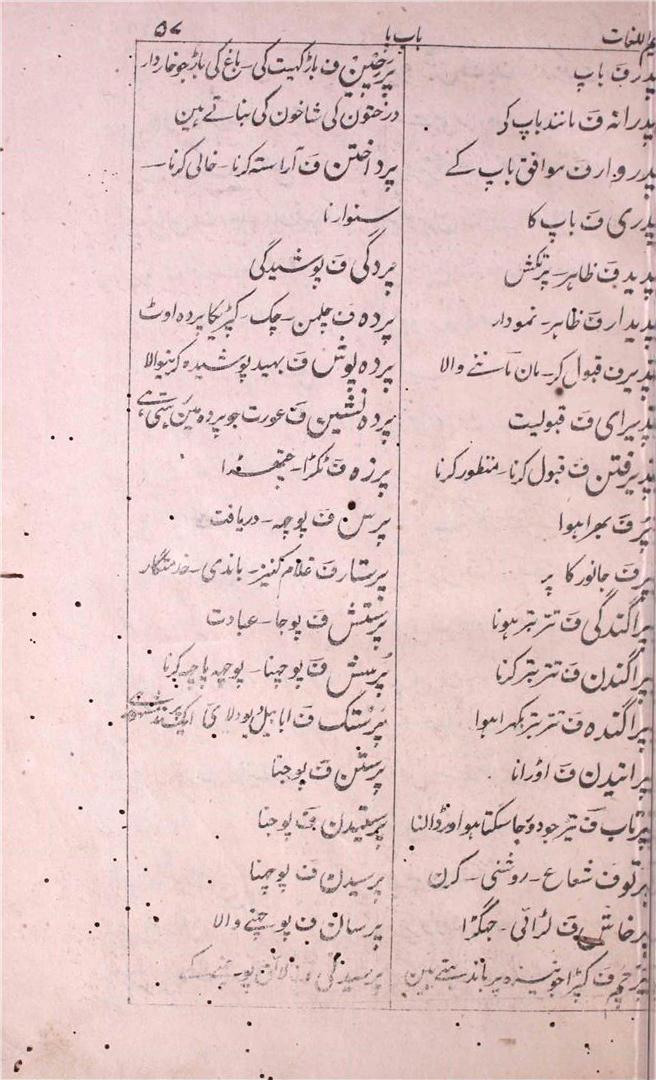 باب با
۵۷
پدر ف باپ
پدرانہ ف مانند باپ کی
پدروار ف موافق باپ کے
پدری ف باپ کا
پدید ف ظاہر۔
پدیدار ف ظاہر۔ نمودار
پذیر ف قبول کر۔ مان ماننے والا
پذیرای ف قبولیت
پذیرفتن ف قبول کرنا۔ منظور کرنا
پر ف بھرا ہوا
پر ف جانور کا پر
پراگندگی ف تتر بتر ہونا
پراگندن ف تتر بتر کرنا
پراگندہ ف تتر بتر بکھرا ہوا
پرانیدن ف اوڑانا
پرتاب ف تیر جو دور جا سکتا ہو اور ڈالنا
پرتو ف شعاع۔ روشنی۔ کرن
پرخاش ف لڑائی۔ جہگڑا
پرچم ف کپڑا جو نیزہ پر باندہتے ہین
پرچین ف باڑ کہیت کی۔ باغ کی باڑ جو خاردار
درختون کی شاخون کی بناتے ہین
پرداختن ف آراستہ کرنا۔ خالی کرنا۔
سنوارنا
پردگی ف پوشیدگی
پردہ ف چلمن۔ چک۔ کپڑیکا پردہ اوٹ
پردہ پوش ف بہید پوشیدہ کرنیوالا
پردہ نشین ف عورت جو پردہ مین رہتی ہے
پرزہ ف ٹکڑا۔ چیتھڑا
پرس ف پوچہہ۔ دریافت
پرستار ف غلام کنیز۔ باندی۔ خدمتگار
پرستش ف پوجا۔ عبادت
پرسش ف پوچہنا۔ پوچہہ پاچہہ کرنا
پرستک ف ابابیل
پرستن ف پوجنا
پرستیدن ف پوجنا
پرسیدن ف پوچہنا
پرسان ف پوچہنے والا
پرسیدنی ف لائق پوچہنے کے